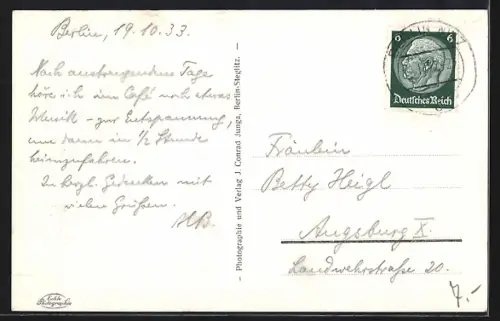 Berlin, 19.10.33.
Nach anstrengendem Tage
höre ich im Café noch etwas
Musik – zur Entspannung,
um dann in 1/2 Stunde
heimzufahren.
In herzl. Gedenken mit
vielen Grüßen.
HB.
Echte
Photographie
– Photographie und Verlag J. Conrad Junga, Berlin-Steglitz. –
6 6
Deutsches Reich
Fräulein
Betty Heigl
Augsburg X.
Landwehrstraße 20.
7.-